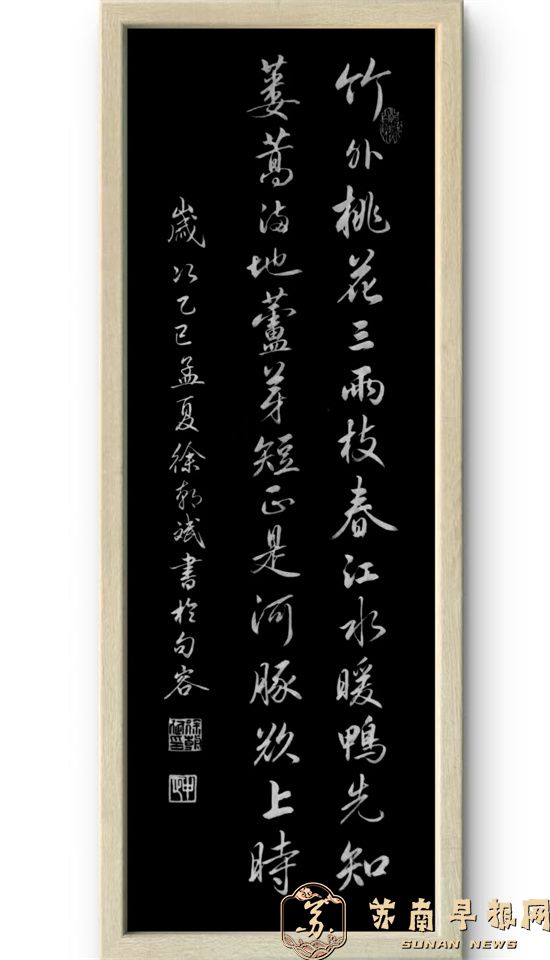 竹外桃花三兩枝春江水暖鴨先知
蒌蒿满地蘆芽短正是河豚欲上時
歲次乙巳孟夏徐朝斌書於句容
苏
苏南早报网
SUNAN NEWS